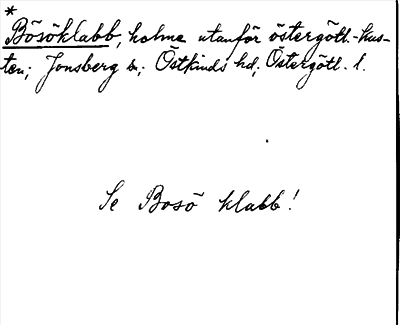 *
Bösöklabb, holme utanför östergötl.-kus-
ten; Jonsberg sn; Östkinds hd, Östergötl. l.
Se Bosö klabb!